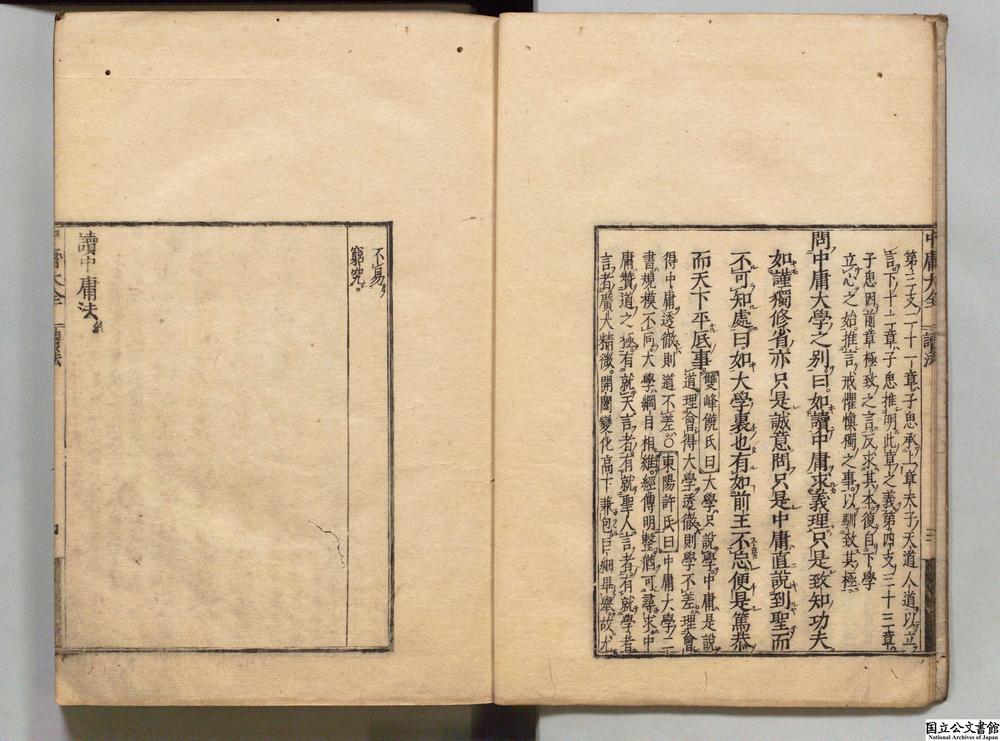 中庸大全 讀法 三
第三支二十一章子思承上章夫子天道人道以立
言下十二章子思推明此章之義第四支三十三章
子思因前章極致之言反求其本復自下學
立心之始推言戒懼慎獨之事以馴致其極
問中庸大學之別曰如讀中庸求義理只是致知功夫
如謹獨修省亦只是誠意問只是中庸直說到聖而
不可知處曰如大學裏也有如前王不忘便是篤恭
而天下平底事雙峰饒氏曰大學只說學中庸是說
道理會得大學透徹則學不差理會
得中庸透徹則道不差○東陽許氏曰中庸大學二
書規模不同大學綱目相維經傳明整猶可尋求中
庸贊道之極有就天言者有就聖人言者有就學者
言者廣大精微開闔變化高下兼包巨細畢舉故尤
不易
窮究
讀中庸法終
中庸大全 讀法 四
国立公文書館
National Archives of Japan